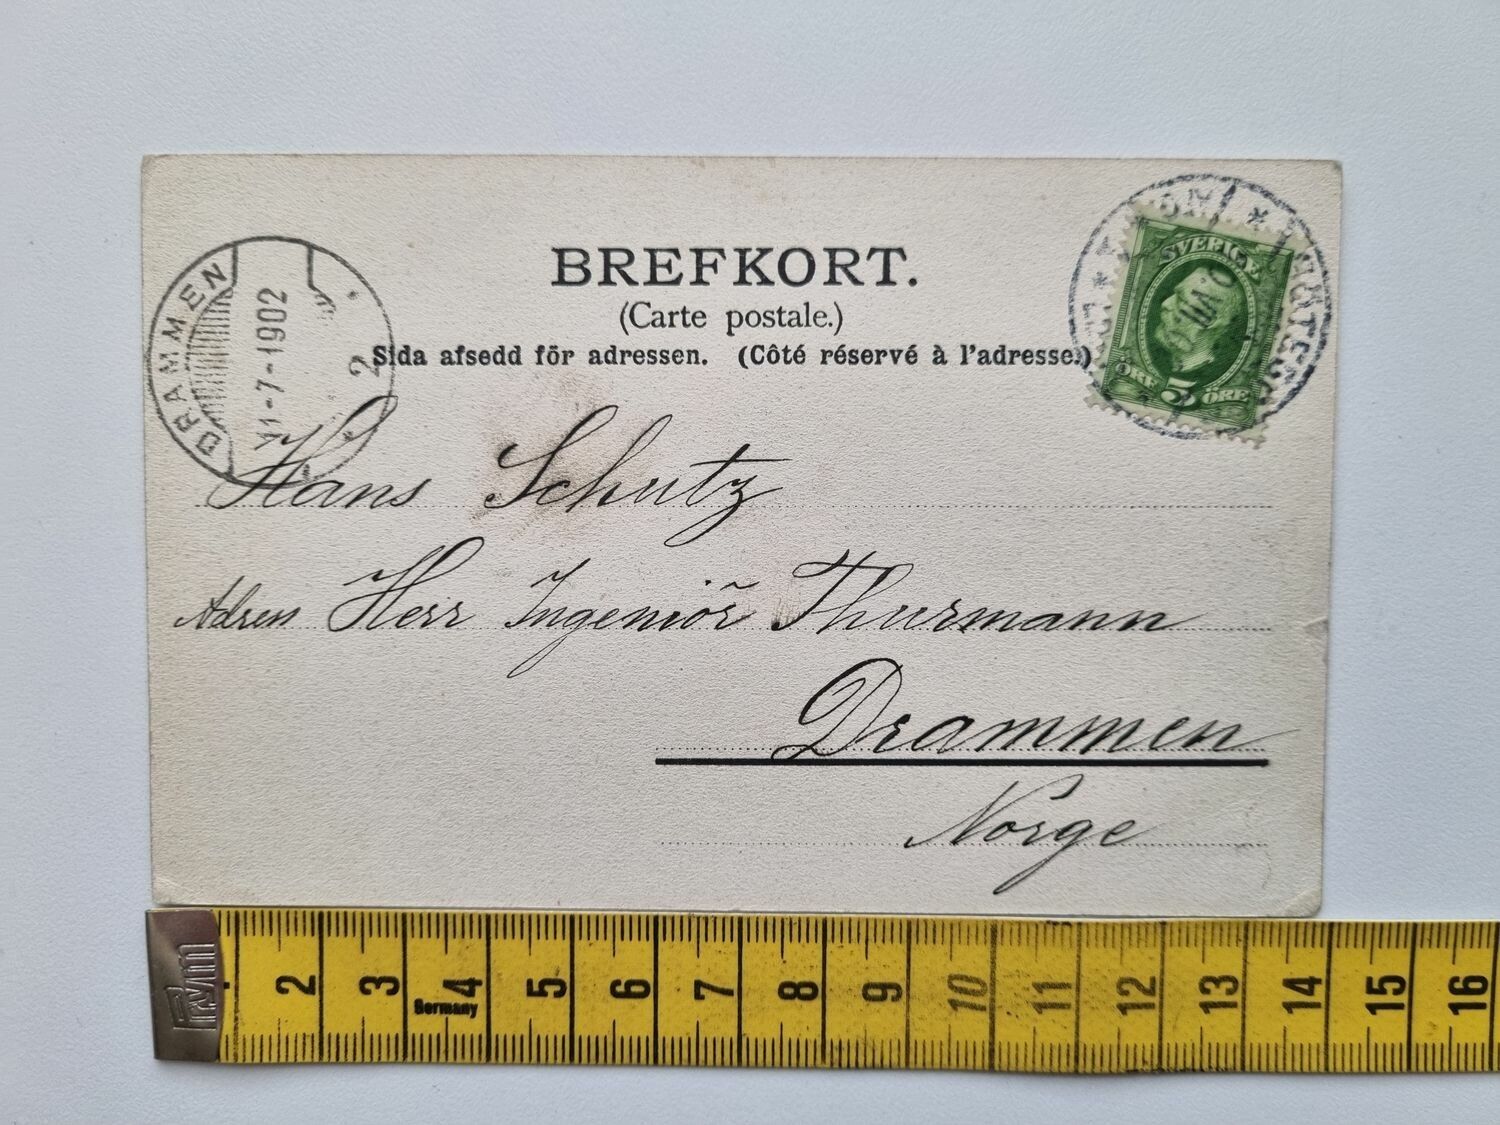 BREFKORT.
(Carte postale.)
Sida afsedd för adressen. (Côté réservé à l'adresse.)
DRAMMEN
-7-1902
2
SVERIGE
ÖRE 5 ÖRE
Hans Schutz
Adress Herr Ingeniör Thurmann
Drammen
Norge
2 3 4 5 6 7 8 9 10 11 12 13 14 15 16
Germany